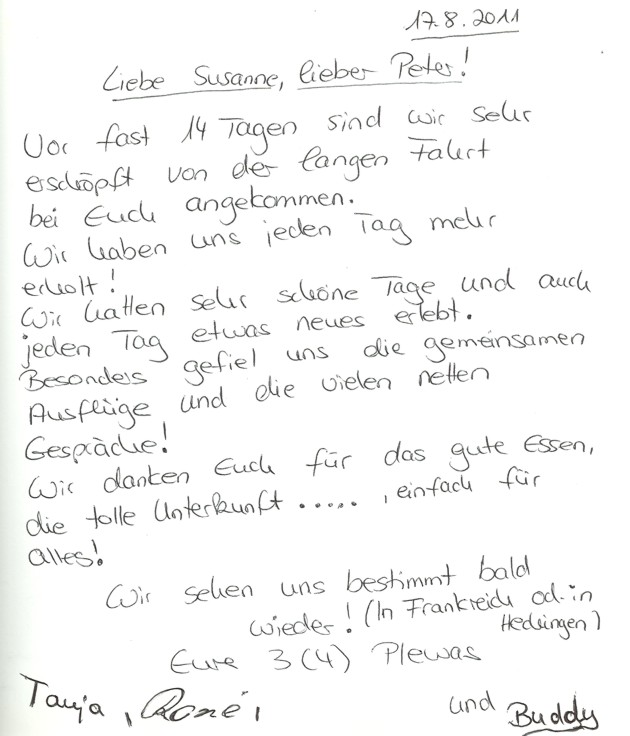 17.8.2011
Liebe Susanne, lieber Peter!
Vor fast 14 Tagen sind wir sehr
erschöpft von der langen Fahrt
bei Euch angekommen.
Wir haben uns jeden Tag mehr
erholt!
Wir hatten sehr schöne Tage und auch
jeden Tag etwas neues erlebt.
Besonders gefiel uns die gemeinsamen
Ausflüge und die vielen netten
Gespräche!
Wir danken Euch für das gute Essen,
die tolle Unterkunft ....., einfach für
alles!
Wir sehen uns bestimmt bald
wieder! (In Frankreich od. in
Hechingen)
Eure 3 (4) Plewas
Tanja, René,
und Buddy